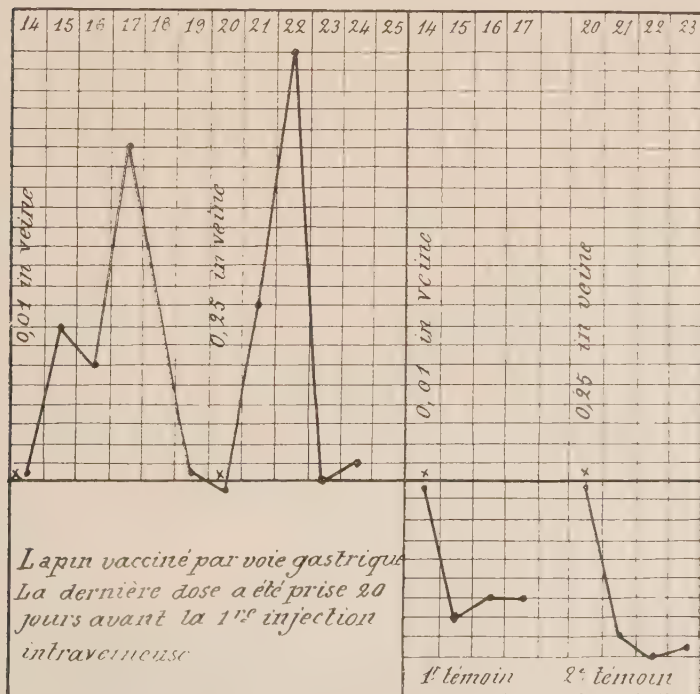 14 15 16 17 18 19 20 21 22 23 24 25 14 15 16 17 20 21 22 23
0,01 in veine
0,25 in veine
0,01 in veine
0,25 in veine
Lapin vacciné par voie gastrique
La dernière dose a été prise 20
jours avant la 1re injection
intraveineuse
1r témoin
2e témoin